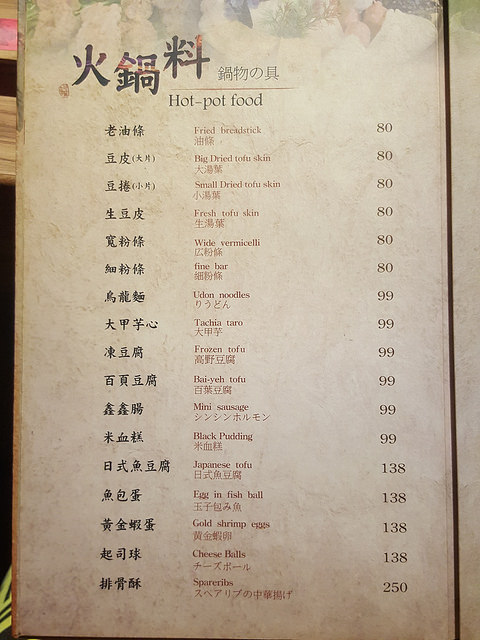 火鍋料 鍋物の具
Hot-pot food
老油條 Fried breadstick 80
油條
豆皮(大片) Big Dried tofu skin 80
大湯葉
豆捲(小片) Small Dried tofu skin 80
小湯葉
生豆皮 Fresh tofu skin 80
生湯葉
寬粉條 Wide vermicelli 80
広粉條
細粉條 fine bar 80
細粉條
烏龍麵 Udon noodles 99
りうどん
大甲芋心 Tachia taro 99
大甲芋
凍豆腐 Frozen tofu 99
高野豆腐
百頁豆腐 Bai-yeh tofu 99
百葉豆腐
鑫鑫腸 Mini sausage 99
シンシンホルモン
米血糕 Black Pudding 99
米血糕
日式魚豆腐 Japanese tofu 138
日式魚豆腐
魚包蛋 Egg in fish ball 138
玉子包み魚
黃金蝦蛋 Gold shrimp eggs 138
黄金蝦卵
起司球 Cheese Balls 138
チーズボール
排骨酥 Spareribs 250
スペアリブの中華揚げ